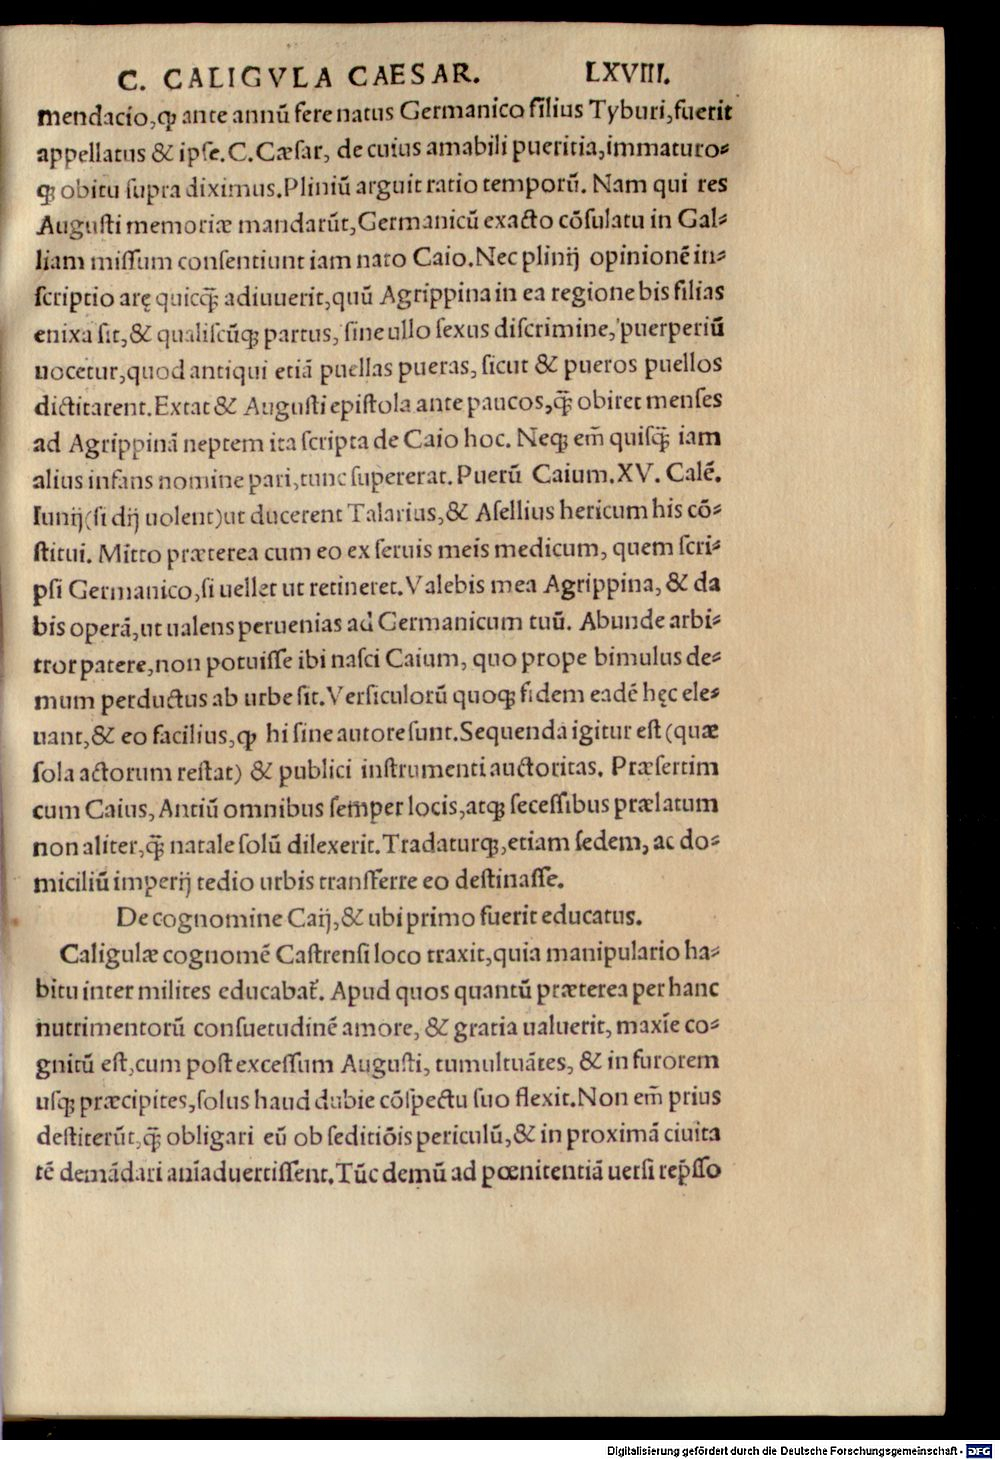 C. CALIGVLA CAESAR. LXVIII.
mendacio,ꝙ ante annū fere natus Germanico filius Tyburi,fuerit
appellatus & ipſe.C.Cæſar, de cuius amabili pueritia,immaturo⸗
qꝫ obitu ſupra diximus.Pliniū arguit ratio temporū. Nam qui res
Auguſti memoriæ mandarūt,Germanicū exacto cōſulatu in Gal⸗
liam miſſum conſentiunt iam nato Caio.Nec plinĳ opinionē in⸗
ſcriptio arę quicq̄ꝫ adiuuerit,quū Agrippina in ea regione bis filias
enixa ſit,& qualiſcūqꝫ partus, ſine ullo ſexus diſcrimine, puerperiū
uocetur,quod antiqui etiā puellas pueras, ſicut & pueros puellos
dictitarent.Extat & Auguſti epiſtola ante paucos,q̄ꝫ obiret menſes
ad Agrippinā neptem ita ſcripta de Caio hoc. Neqꝫ em̄ quiſq̄ꝫ iam
alius infans nomine pari,tunc ſupererat.Puerū Caium.XV. Calē.
Iunĳ(ſi dĳ uolent)ut ducerent Talarius,& Aſellius hericum his cō⸗
ſtitui. Mitto præterea cum eo ex ſeruis meis medicum, quem ſcri⸗
pſi Germanico,ſi uellet ut retineret.Valebis mea Agrippina, & da
bis operā,ut ualens peruenias ad Germanicum tuū. Abunde arbi⸗
tror patere,non potuiſſe ibi naſci Caium, quo prope bimulus de⸗
mum perductus ab urbe ſit.Verſiculorū quoqꝫ fidem eadē hęc ele⸗
uant,& eo facilius,ꝙ hi ſine autore ſunt.Sequenda igitur eſt (quæ
ſola actorum reſtat) & publici inſtrumenti auctoritas. Præſertim
cum Caius, Antiū omnibus ſemper locis,atqꝫ ſeceſſibus prælatum
non aliter,q̄ꝫ natale ſolū dilexerit.Tradaturqꝫ,etiam ſedem, ac do⸗
miciliū imperĳ tedio urbis tranſferre eo deſtinaſſe.
De cognomine Caĳ,& ubi primo fuerit educatus.
Caligulæ cognomē Caſtrenſi loco traxit,quia manipulario ha⸗
bitu inter milites educabat̄. Apud quos quantū præterea per hanc
nutrimentorū conſuetudinē amore, & gratia ualuerit, maxīe co⸗
gnitū eſt,cum poſt exceſſum Auguſti, tumultuātes, & in furorem
uſqꝫ præcipites,ſolus haud dubie cōſpectu ſuo flexit.Non em̄ prius
deſtiterūt,q̄ꝫ obligari eū ob ſeditiōis periculū,& in proximā ciuita
tē demādari anīaduertiſſent.Tūc demū ad pœnitentiā uerſi rep̄ſſo
Digitalisierung gefördert durch die Deutsche Forschungsgemeinschaft - DFG